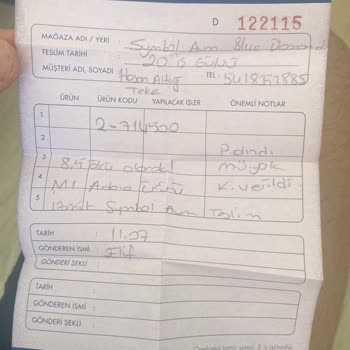 D 122115
MAĞAZA ADI / YERİ : Symbol Avm Blue Diamond
TESLİM TARİHİ 20 iş Günü
MÜŞTERİ ADI, SOYADI Hasan Altuğ TEL: 5418352885
Teke
ÜRÜN ÜRÜN KODU YAPILACAK İŞLER ÖNEMLİ NOTLAR
1
2 2-714500
3 P.alındı
8,5 ölçü olarak! mü.yok
4 K.verildi.
5 İzmit Symbol Avm Teslim
TARİH : 11.07
GÖNDEREN İSMİ : Elif
GÖNDERİ ŞEKLİ :
TARİH :
GÖNDEREN İSMİ :
GÖNDERİ ŞEKLİ :